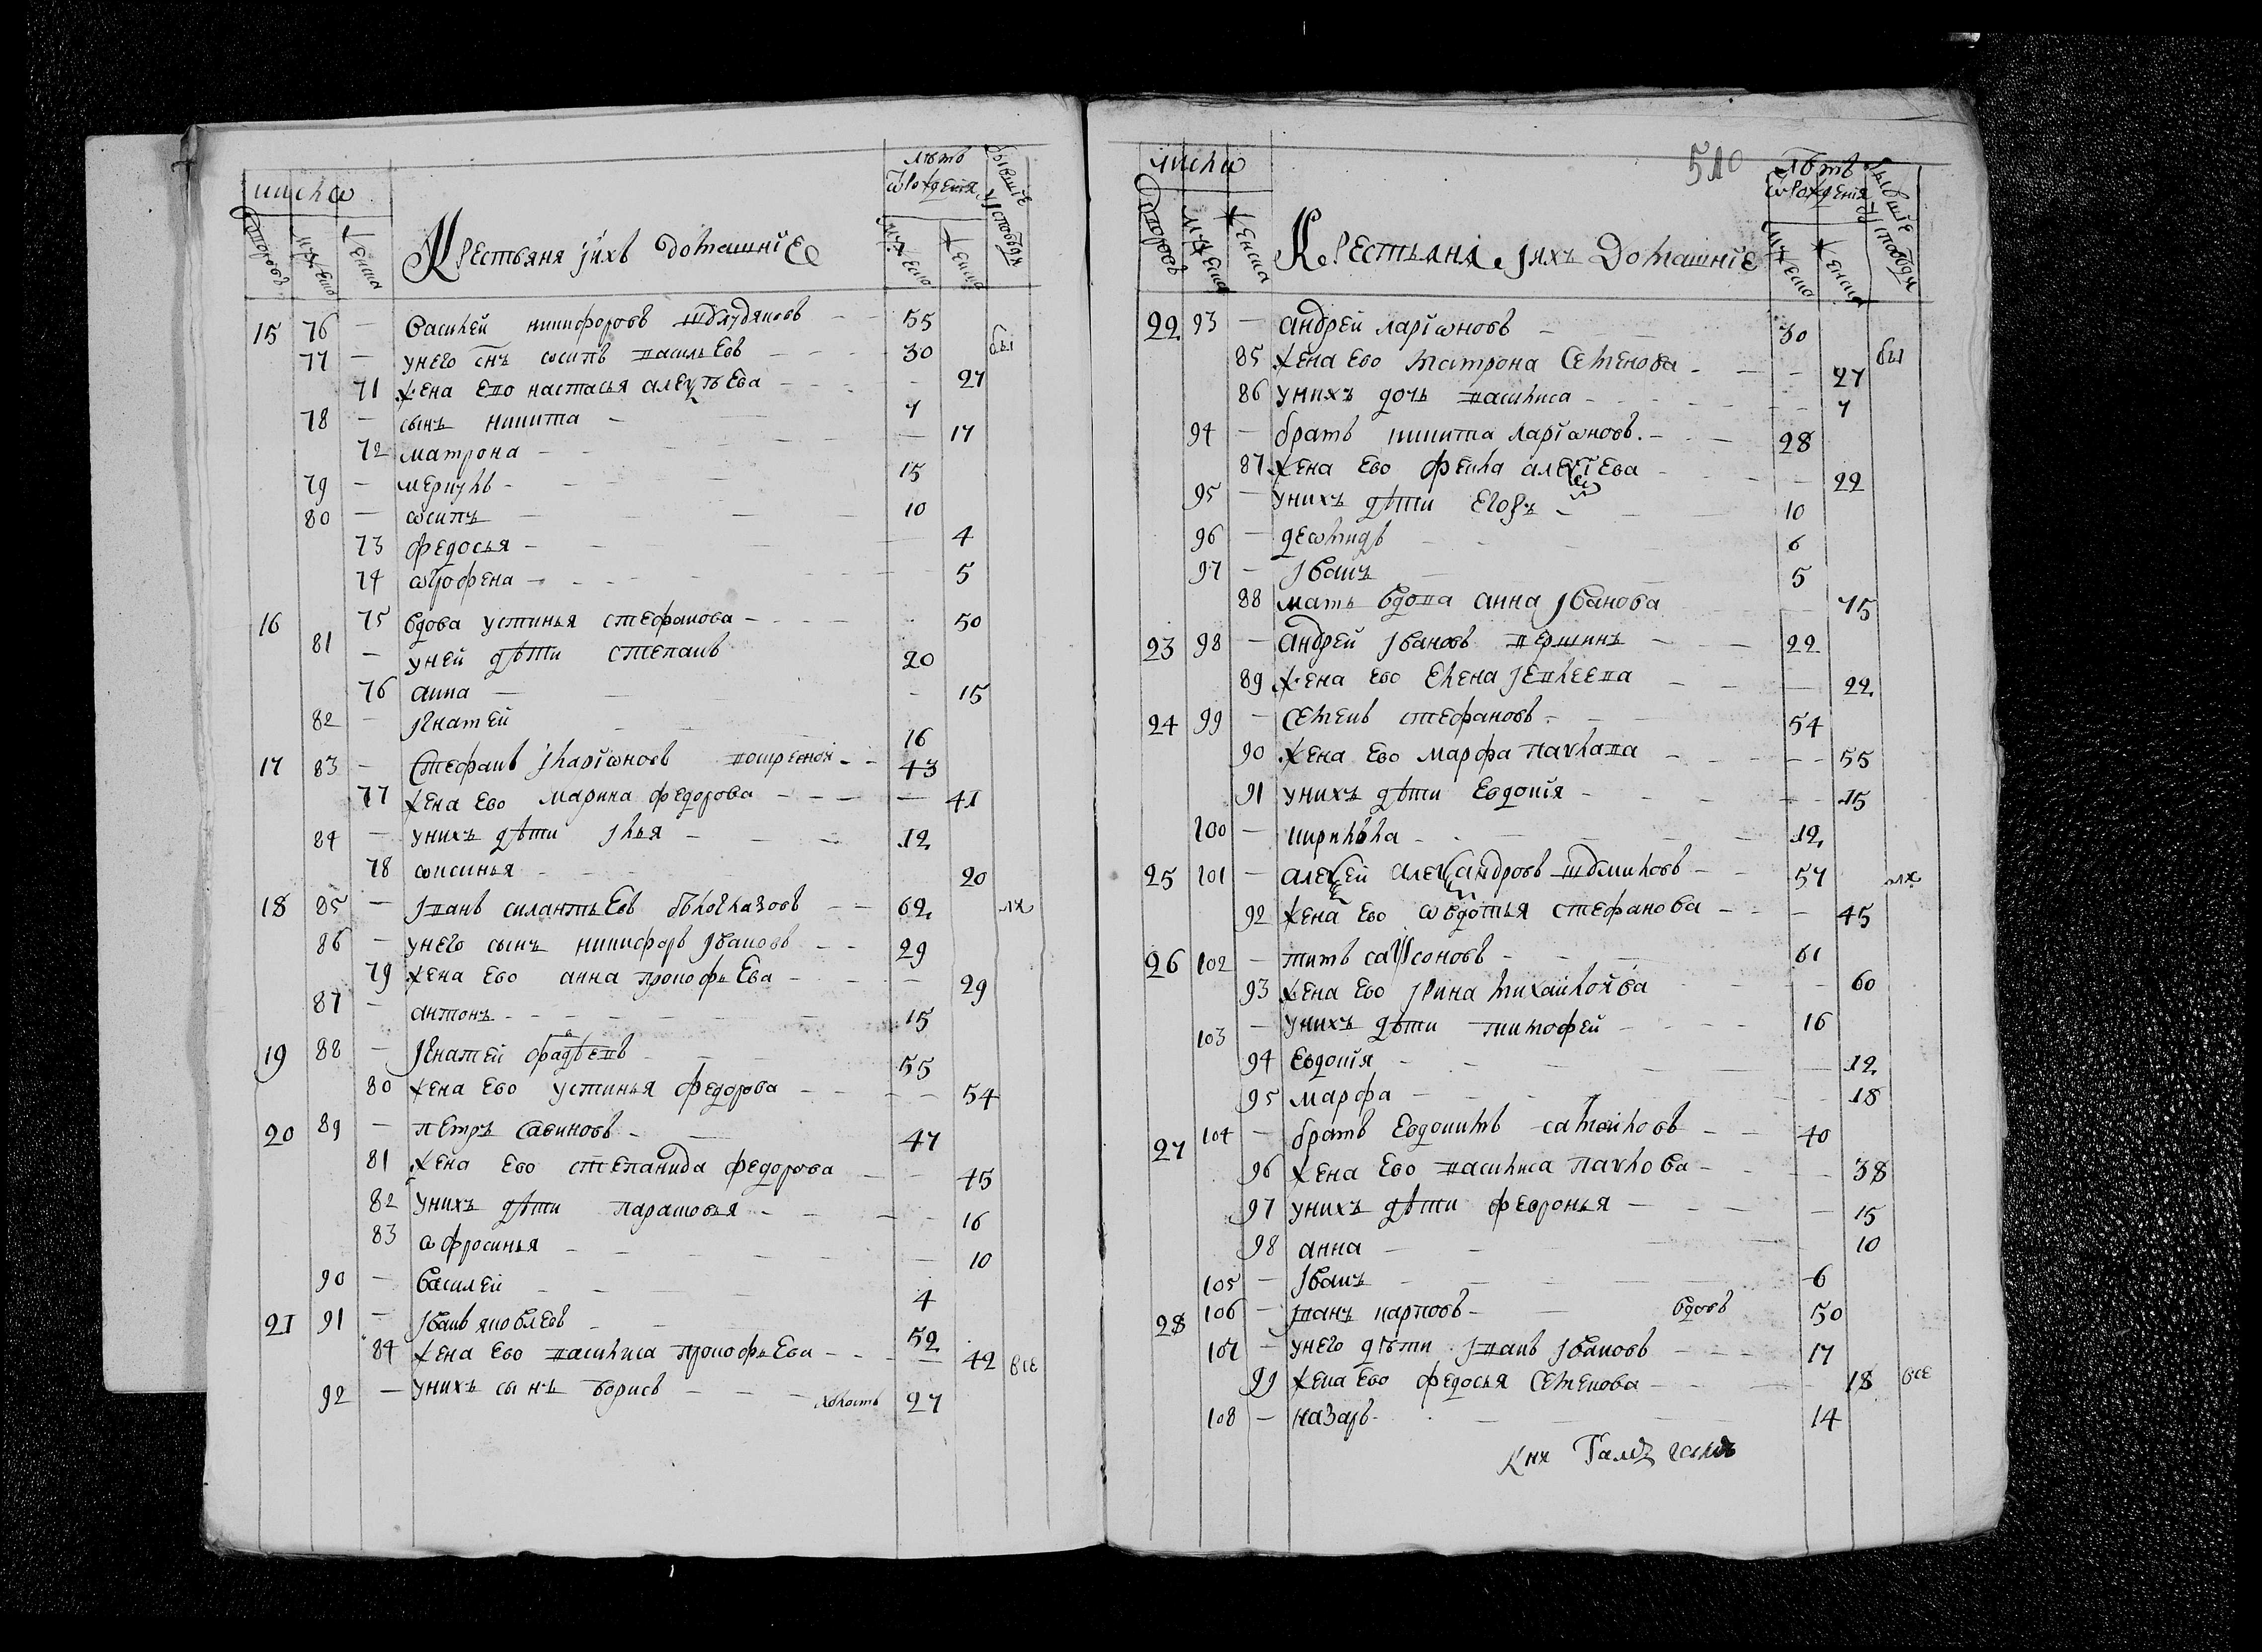 число
лѣтъ
ѿ рожденїя
бывшїе
у исповѣди
дворовъ
мужеска
женска
Крестьяня ихъ домашнїе
мужеска
женска
15 76 — василей никифоровъ — — 55
77 — унего снъ ѡсипъ васильевъ — 30 бы
71 жена ево настасья алексѣева — 27
78 — сынъ никита — 7
72 матрона — — 17
79 — меркулъ — 15
80 — ѡсипъ — 10
73 федосья — — 4
74 ѡгрофена — — 5
16 75 вдова устинья стефанова — 50
81 — уней дѣти степанъ 20
76 анна — — 15
82 — игнатей — 16
17 83 — стефанъ иларїѡновъ — 43
77 жена ево марина федорова — — 41
84 — унихъ дѣти илья — 12
78 ѡксинья — 20
18 85 — иванъ силантьевъ бѣлоглазовъ — 62
86 — унего сынъ никифоръ ивановъ — 29
79 жена ево анна прокофьева — — 29
87 — антонъ — 15
19 88 — игнатей фадѣевъ — 55
80 жена ево устинья федорова — — 54
20 89 — петръ савиновъ — 47
81 жена ево степанида федорова — — 45
82 унихъ дѣти парасковья — — 16
83 ѡфросинья — — 10
90 — василей — 4
21 91 — иванъ яковлевъ — 52
84 жена ево василиса прокофьева — — 42 все
92 — унихъ сынъ борисъ — холостъ 27
510
число
лѣтъ
ѿ рожденїя
бывшїе
у исповѣди
дворовъ
мужеска
женска
Крестьяня ихъ домашнїе
мужеска
женска
22 93 — андрей ларїѡновъ — 30
85 жена ево матрона семенова — — 27 бы
86 унихъ дочь василиса — — 7
94 — братъ никита ларїѡновъ — 28
87 жена ево фекла алексїева — — 22
95 — унихъ дѣти егоръ — 10
96 — деѡмидъ — 6
97 — иванъ — 5
88 мать вдова анна иванова — 75
23 98 — андрей ивановъ першинъ — 22
89 жена ево елена иевлеева — — 22
24 99 — семенъ стефановъ — 54
90 жена ево марфа павлова — — 55
91 унихъ дѣти евдокїя — — 15
100 — кирилъка — 12
25 101 — алексей александровъ — 57
92 жена ево ѡвдотья стефанова — — 45
26 102 — титъ самсоновъ — 61
93 жена ево ирина михайлова — — 60
103 — унихъ дѣти тимофей — 16
94 евдокїя — — 12
95 марфа — — 18
27 104 — братъ евдокимъ самойловъ — 40
96 жена ево василиса павлова — — 38
97 унихъ дѣти февронья — — 15
98 анна — — 10
105 — иванъ — 6
28 106 — иванъ карповъ — вдовъ 50
107 — унего дѣти иванъ ивановъ — 17
99 жена ево федосья семенова — — 18 все
108 — назаръ — 14